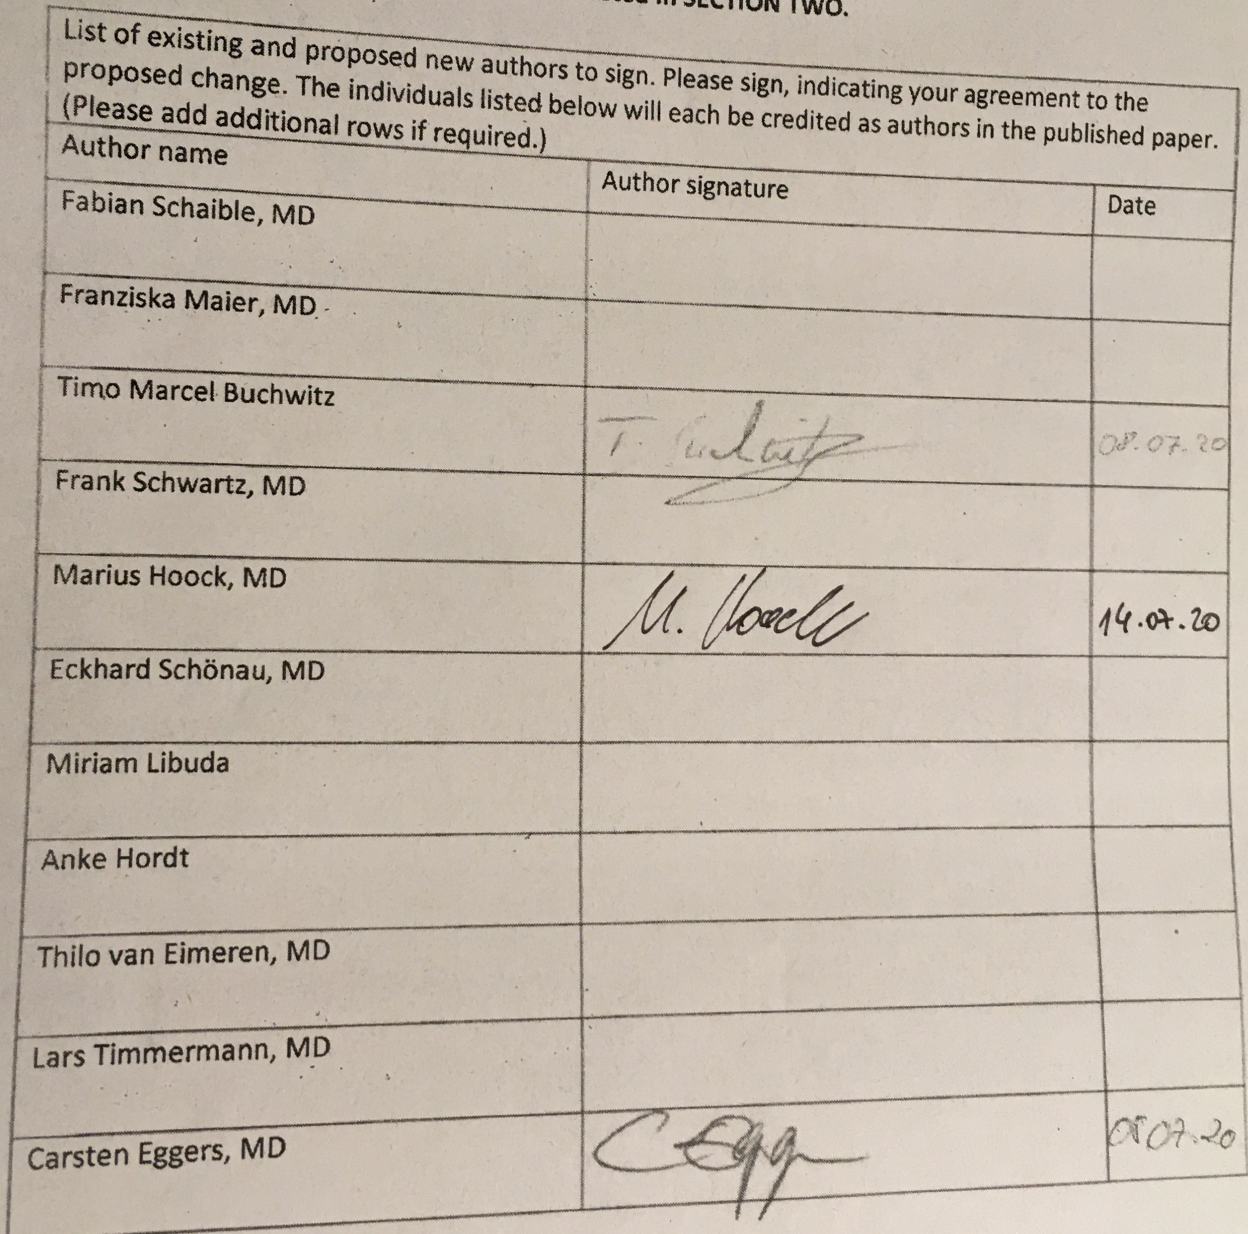 SECTION TWO.
List of existing and proposed new authors to sign. Please sign, indicating your agreement to the
proposed change. The individuals listed below will each be credited as authors in the published paper.
(Please add additional rows if required.)
Author name Author signature Date
Fabian Schaible, MD
Franziska Maier, MD
Timo Marcel Buchwitz
T. Buchwitz 08.07.20
Frank Schwartz, MD
Marius Hoock, MD
M. Hoock 14.07.20
Eckhard Schönau, MD
Miriam Libuda
Anke Hordt
Thilo van Eimeren, MD
Lars Timmermann, MD
Carsten Eggers, MD
C Egg 07.20